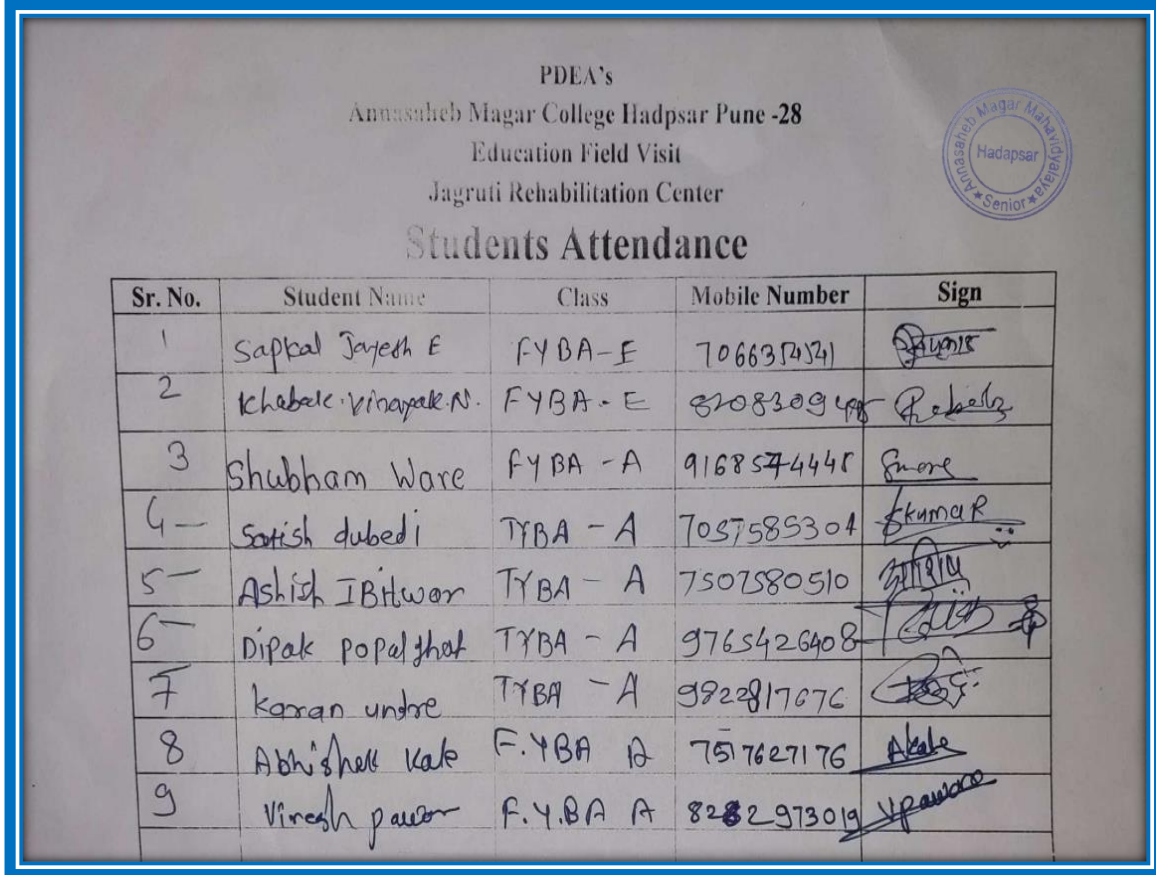 PDEA's
Annasaheb Magar College Hadpsar Pune -28
Education Field Visit
Jagruti Rehabilitation Center
Students Attendance
Annasaheb Magar Mahavidyalaya
Hadapsar
★ Senior ★
Sr. No. Student Name Class Mobile Number Sign
1 Sapkal Jayesh E FYBA-E
2 Khabale Vinayak.N. FYBA-E
3 Shubham Ware FYBA -A Smore
4 Satish dubedi TYBA - A 7057585304 Skumar
5 Ashish IBitwar TYBA - A 7507580510 आशिष
6 Dipak popalghat TYBA - A 9765426408
7 karan undre TYBA - A 9822817676
8 Abhishek Kale F.YBA A 7517627176 Akale
9 Vinesh pawar F.Y.BA A 8282973019 Vpaware